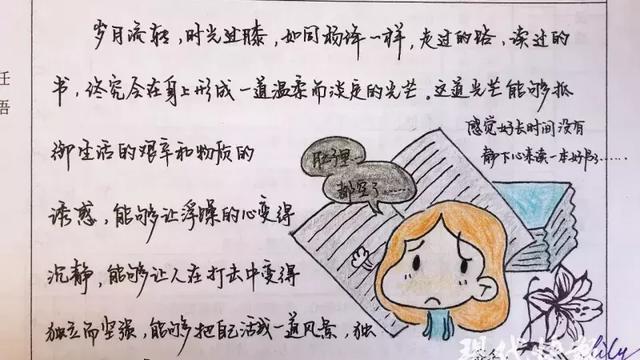 岁月流转，时光过膝，如同杨绛一样，走过的路，读过的
书，终究会在身上形成一道温柔而淡定的光芒。这道光芒能够抵
御生活的艰辛和物质的
诱惑，能够让浮躁的心变得
沉静，能够让人在打击中变得
独立而坚强，能够把自己活成一道风景，独
感觉好长时间没有
静下心来读一本好书了……
肚子里…
都空了……
任
语
lily